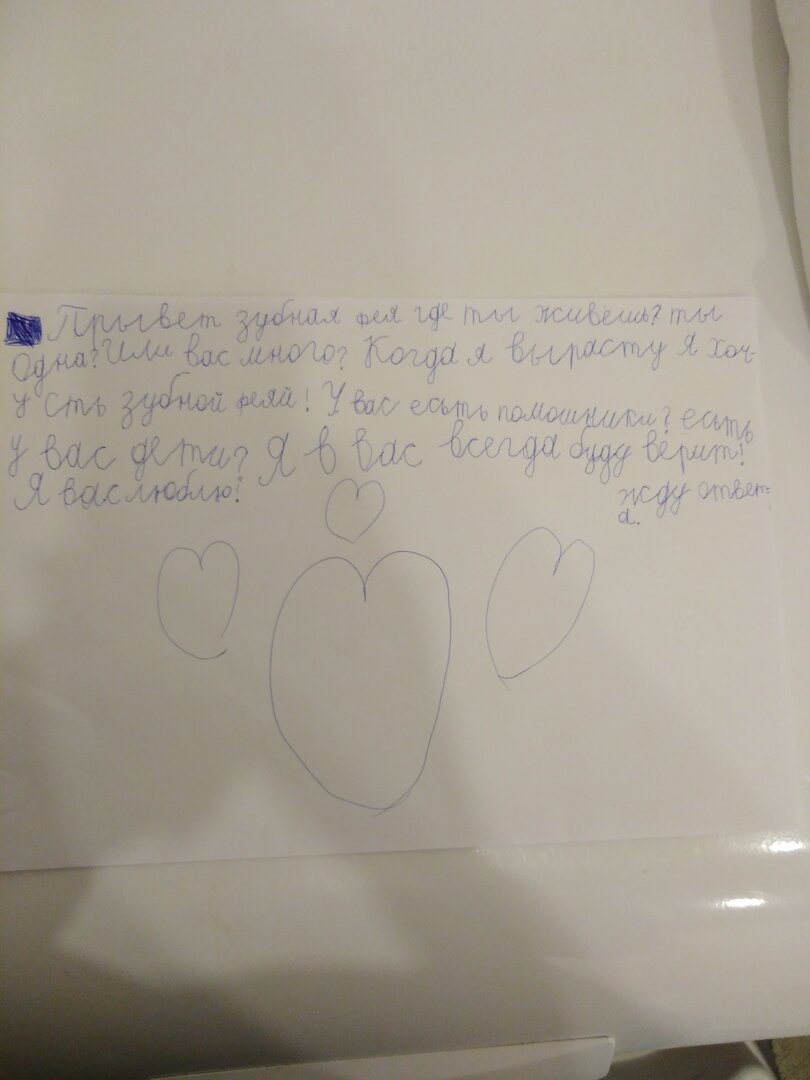 Прывет зубная фея где ты живёшь? ты
одна? Или вас много? Когда я вырасту я хоч-
у сть зубной феяй! У вас есьть помошники? есьть
у вас дети? Я в вас всегда буду верит!
Я вас люблю!
жду ответ-
а.